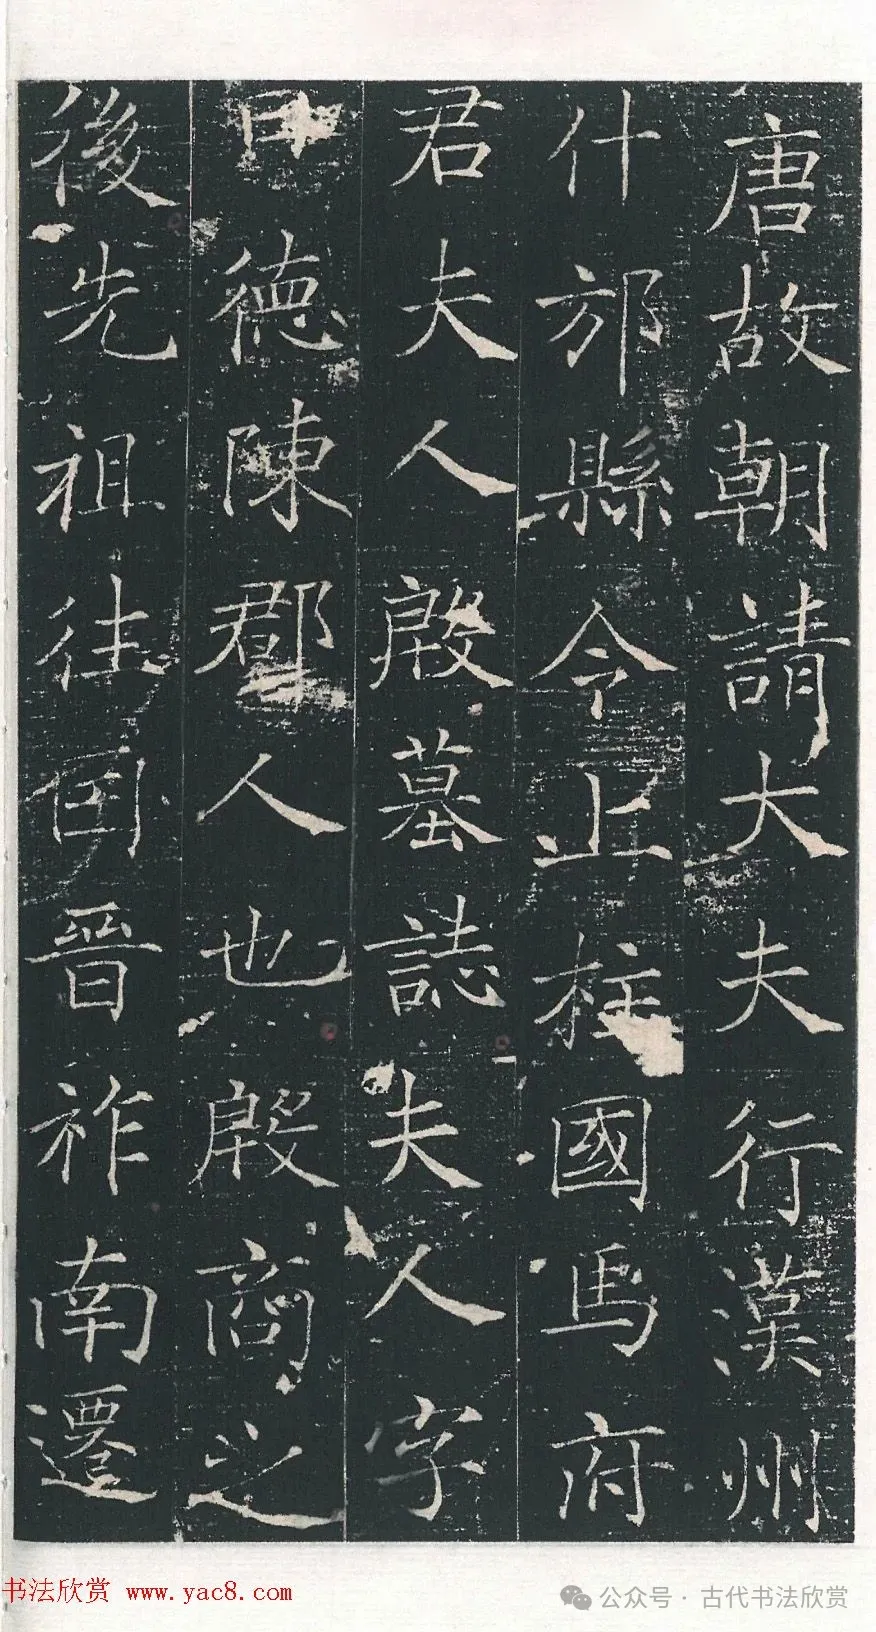 唐故朝請大夫行漢州
什邡縣令上柱國馬府
君夫人殷墓誌夫人字
日德陳郡人也殷商之
後先祖往因晉祚南遷
书法欣赏 www.yac8.com
公众号·古代书法欣赏